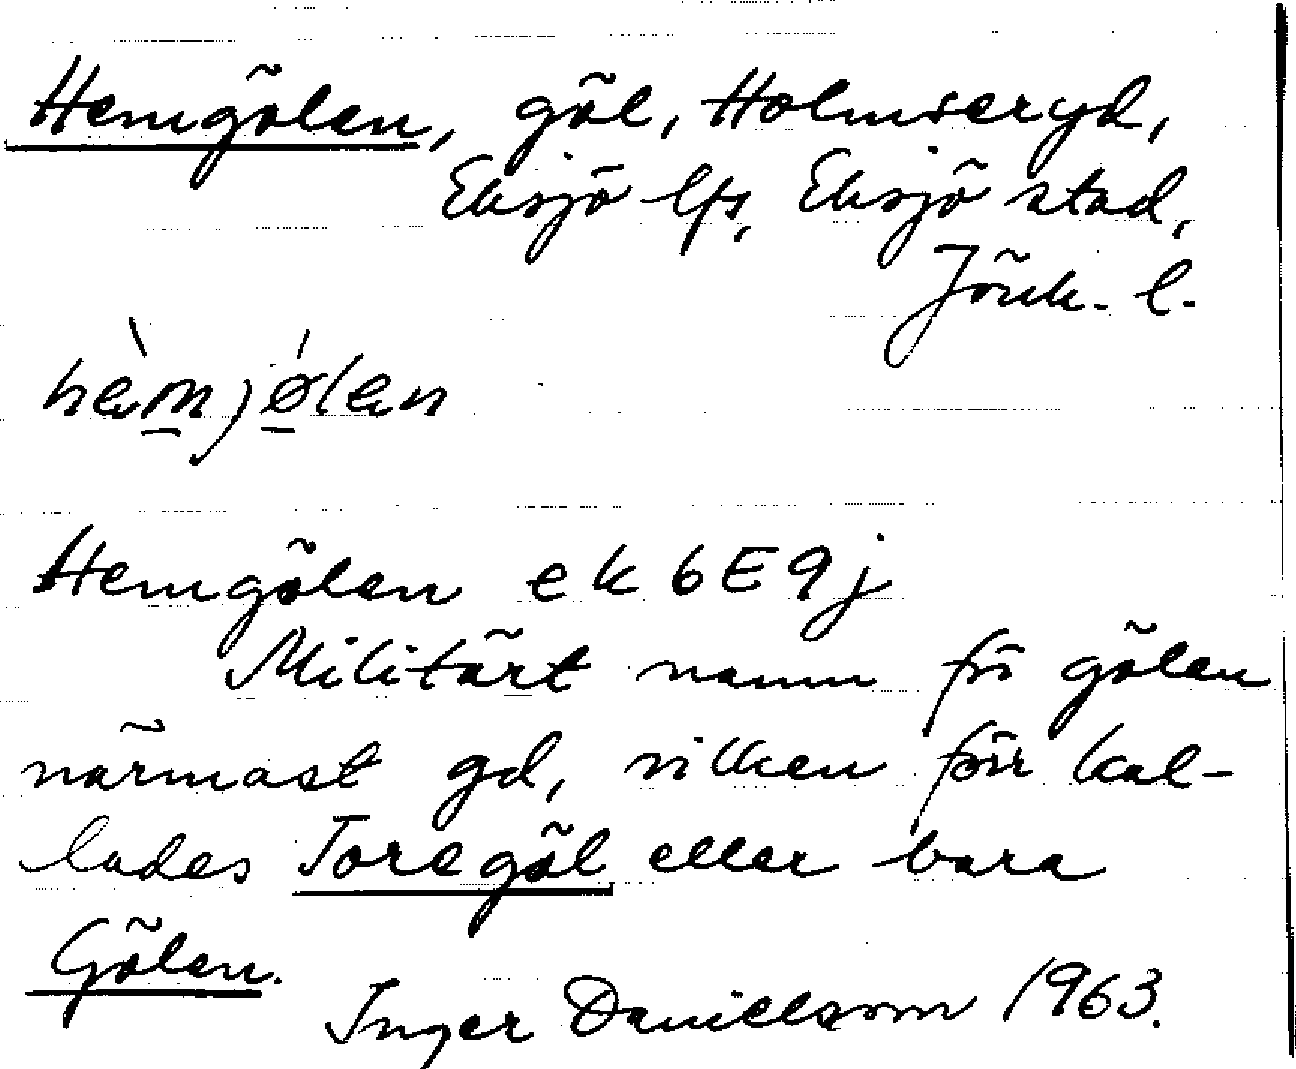 Hemgölen, göl, Holmseryd,
Eksjö lfs, Eksjö stad,
Jönk. l.
hèmjǿlen
Hemgölen ek 6E9j
Militärt namn för gölen
närmast gd, vilken förr kal-
lades Toregöl eller bara
Gölen.
Inger Danielsson 1963.